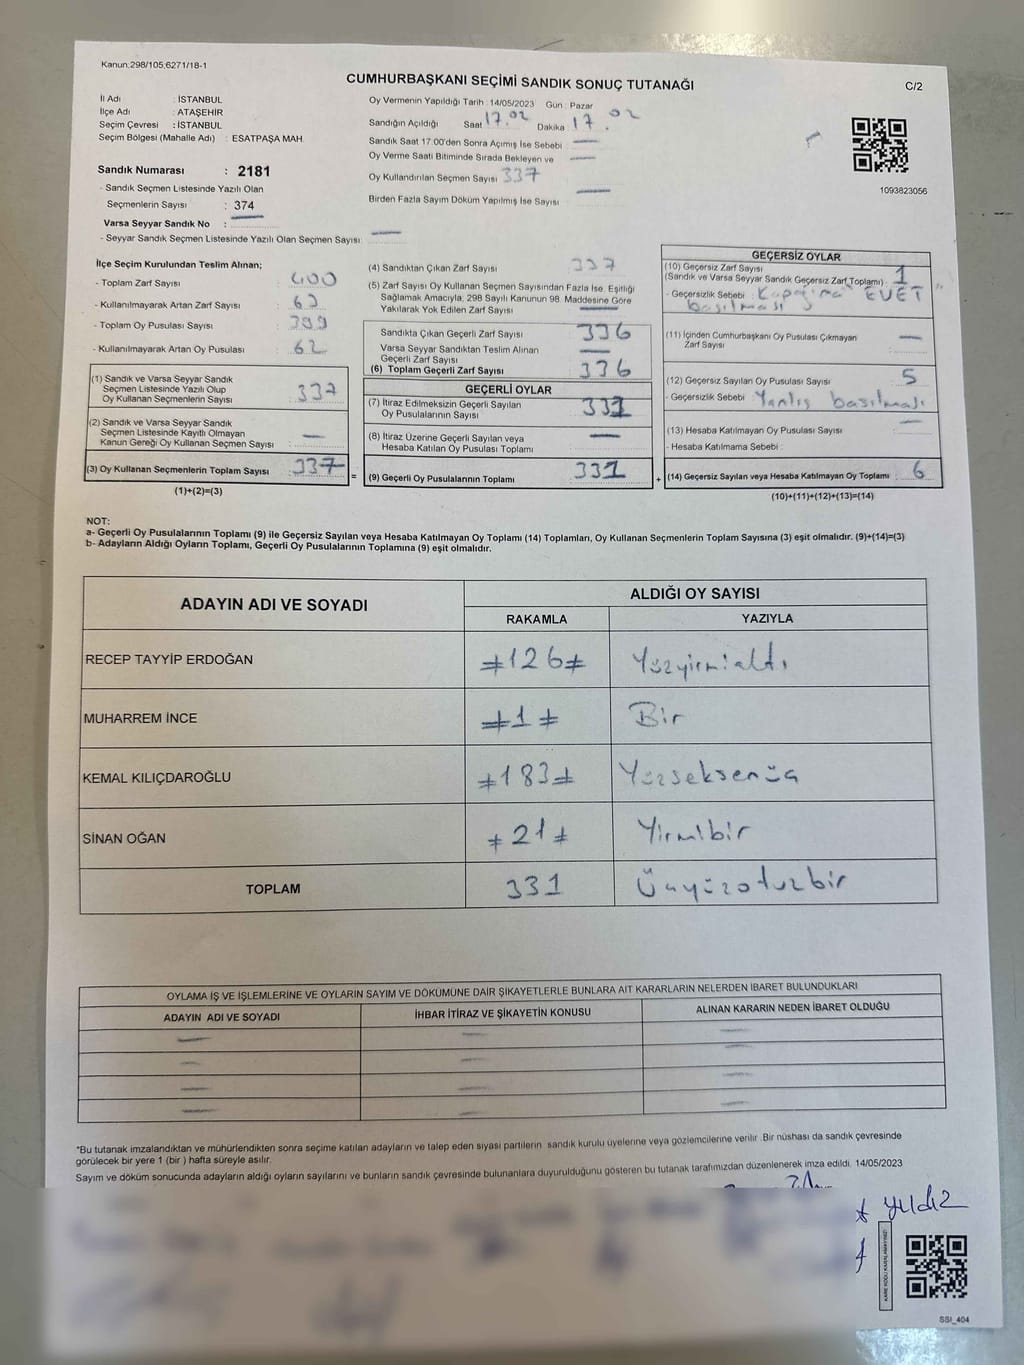 Kanun.298/105,6271/18-1
CUMHURBAŞKANI SEÇİMİ SANDIK SONUÇ TUTANAĞI
C/2
İl Adı : İSTANBUL
İlçe Adı : ATAŞEHİR
Seçim Çevresi : İSTANBUL
Seçim Bölgesi (Mahalle Adı) : ESATPAŞA MAH.
Oy Vermenin Yapıldığı Tarih : 14/05/2023 Gün : Pazar
Sandığın Açıldığı Saat 17.02 Dakika : 17.02
Sandık Saat 17:00'den Sonra Açımış İse Sebebi —
Oy Verme Saati Bitiminde Sırada Bekleyen ve —
Oy Kullandırılan Seçmen Sayısı 337
Birden Fazla Sayım Döküm Yapılmış İse Sayısı —
1093823056
Sandık Numarası : 2181
- Sandık Seçmen Listesinde Yazılı Olan
Seçmenlerin Sayısı : 374
Varsa Seyyar Sandık No : —
- Seyyar Sandık Seçmen Listesinde Yazılı Olan Seçmen Sayısı: —
İlçe Seçim Kurulundan Teslim Alınan;
- Toplam Zarf Sayısı : 400
- Kullanılmayarak Artan Zarf Sayısı : 63
- Toplam Oy Pusulası Sayısı : 399
- Kullanılmayarak Artan Oy Pusulası : 62
(1) Sandık ve Varsa Seyyar Sandık
Seçmen Listesinde Yazılı Olup
Oy Kullanan Seçmenlerin Sayısı : 337
(2) Sandık ve Varsa Seyyar Sandık
Seçmen Listesinde Kayıtlı Olmayan
Kanun Gereği Oy Kullanan Seçmen Sayısı : —
(3) Oy Kullanan Seçmenlerin Toplam Sayısı : 337
(1)+(2)=(3)
=
(4) Sandıktan Çıkan Zarf Sayısı : 337
(5) Zarf Sayısı Oy Kullanan Seçmen Sayısından Fazla İse, Eşitliği
Sağlamak Amacıyla, 298 Sayılı Kanunun 98. Maddesine Göre
Yakılarak Yok Edilen Zarf Sayısı : —
Sandıkta Çıkan Geçerli Zarf Sayısı : 336
Varsa Seyyar Sandıktan Teslim Alınan
Geçerli Zarf Sayısı : —
(6) Toplam Geçerli Zarf Sayısı : 336
GEÇERLİ OYLAR
(7) İtiraz Edilmeksizin Geçerli Sayılan
Oy Pusulalarının Sayısı : 331
(8) İtiraz Üzerine Geçerli Sayılan veya
Hesaba Katılan Oy Pusulası Toplamı : —
(9) Geçerli Oy Pusulalarının Toplamı : 331
+
GEÇERSİZ OYLAR
(10) Geçersiz Zarf Sayısı
(Sandık ve Varsa Seyyar Sandık Geçersiz Zarf Toplamı) : 1
- Geçersizlik Sebebi : Kapağına "EVET"
basılması
(11) İçinden Cumhurbaşkanı Oy Pusulası Çıkmayan
Zarf Sayısı —
(12) Geçersiz Sayılan Oy Pusulası Sayısı : 5
- Geçersizlik Sebebi : Yanlış basılmalı
(13) Hesaba Katılmayan Oy Pusulası Sayısı : —
- Hesaba Katılmama Sebebi :
(14) Geçersiz Sayılan veya Hesaba Katılmayan Oy Toplamı : 6
(10)+(11)+(12)+(13)=(14)
NOT:
a- Geçerli Oy Pusulalarının Toplamı (9) ile Geçersiz Sayılan veya Hesaba Katılmayan Oy Toplamı (14) Toplamları, Oy Kullanan Seçmenlerin Toplam Sayısına (3) eşit olmalıdır. (9)+(14)=(3)
b- Adayların Aldığı Oyların Toplamı, Geçerli Oy Pusulalarının Toplamına (9) eşit olmalıdır.
ADAYIN ADI VE SOYADI
ALDIĞI OY SAYISI
RAKAMLA YAZIYLA
RECEP TAYYİP ERDOĞAN ≠126≠ Yüzyirmialtı
MUHARREM İNCE ≠1≠ Bir
KEMAL KILIÇDAROĞLU ≠183≠ Yüzseksenüç
SİNAN OĞAN ≠21≠ Yirmibir
TOPLAM 331 Üçyüzotuzbir
OYLAMA İŞ VE İŞLEMLERİNE VE OYLARIN SAYIM VE DÖKÜMÜNE DAİR ŞİKAYETLERLE BUNLARA AİT KARARLARIN NELERDEN İBARET BULUNDUKLARI
ADAYIN ADI VE SOYADI İHBAR İTİRAZ VE ŞİKAYETİN KONUSU ALINAN KARARIN NEDEN İBARET OLDUĞU
— — —
— — —
— — —
— — —
*Bu tutanak imzalandıktan ve mühürlendikten sonra seçime katılan adayların ve talep eden siyasi partilerin sandık kurulu üyelerine veya gözlemcilerine verilir .Bir nüshası da sandık çevresinde
görülecek bir yere 1 (bir ) hafta süreyle asılır.
Sayım ve döküm sonucunda adayların aldığı oyların sayılarını ve bunların sandık çevresinde bulunanlara duyurulduğunu gösteren bu tutanak tarafımızdan düzenlenerek imza edildi. 14/05/2023
yıldız
KARE KODU KARALAMAYINIZ!
SSI_404